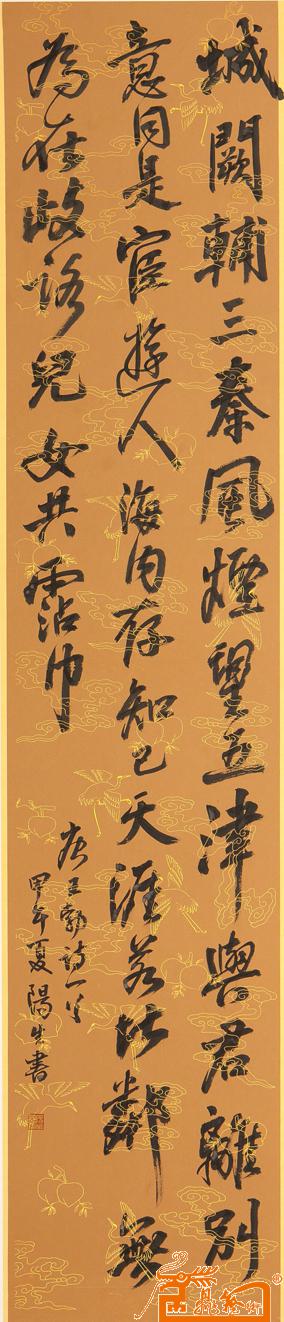 城闕輔三秦風煙望五津與君離別
意同是宦遊人海内存知己天涯若比鄰無
為在歧路兒女共霑巾
唐王勃詩一首
甲午夏陽生書